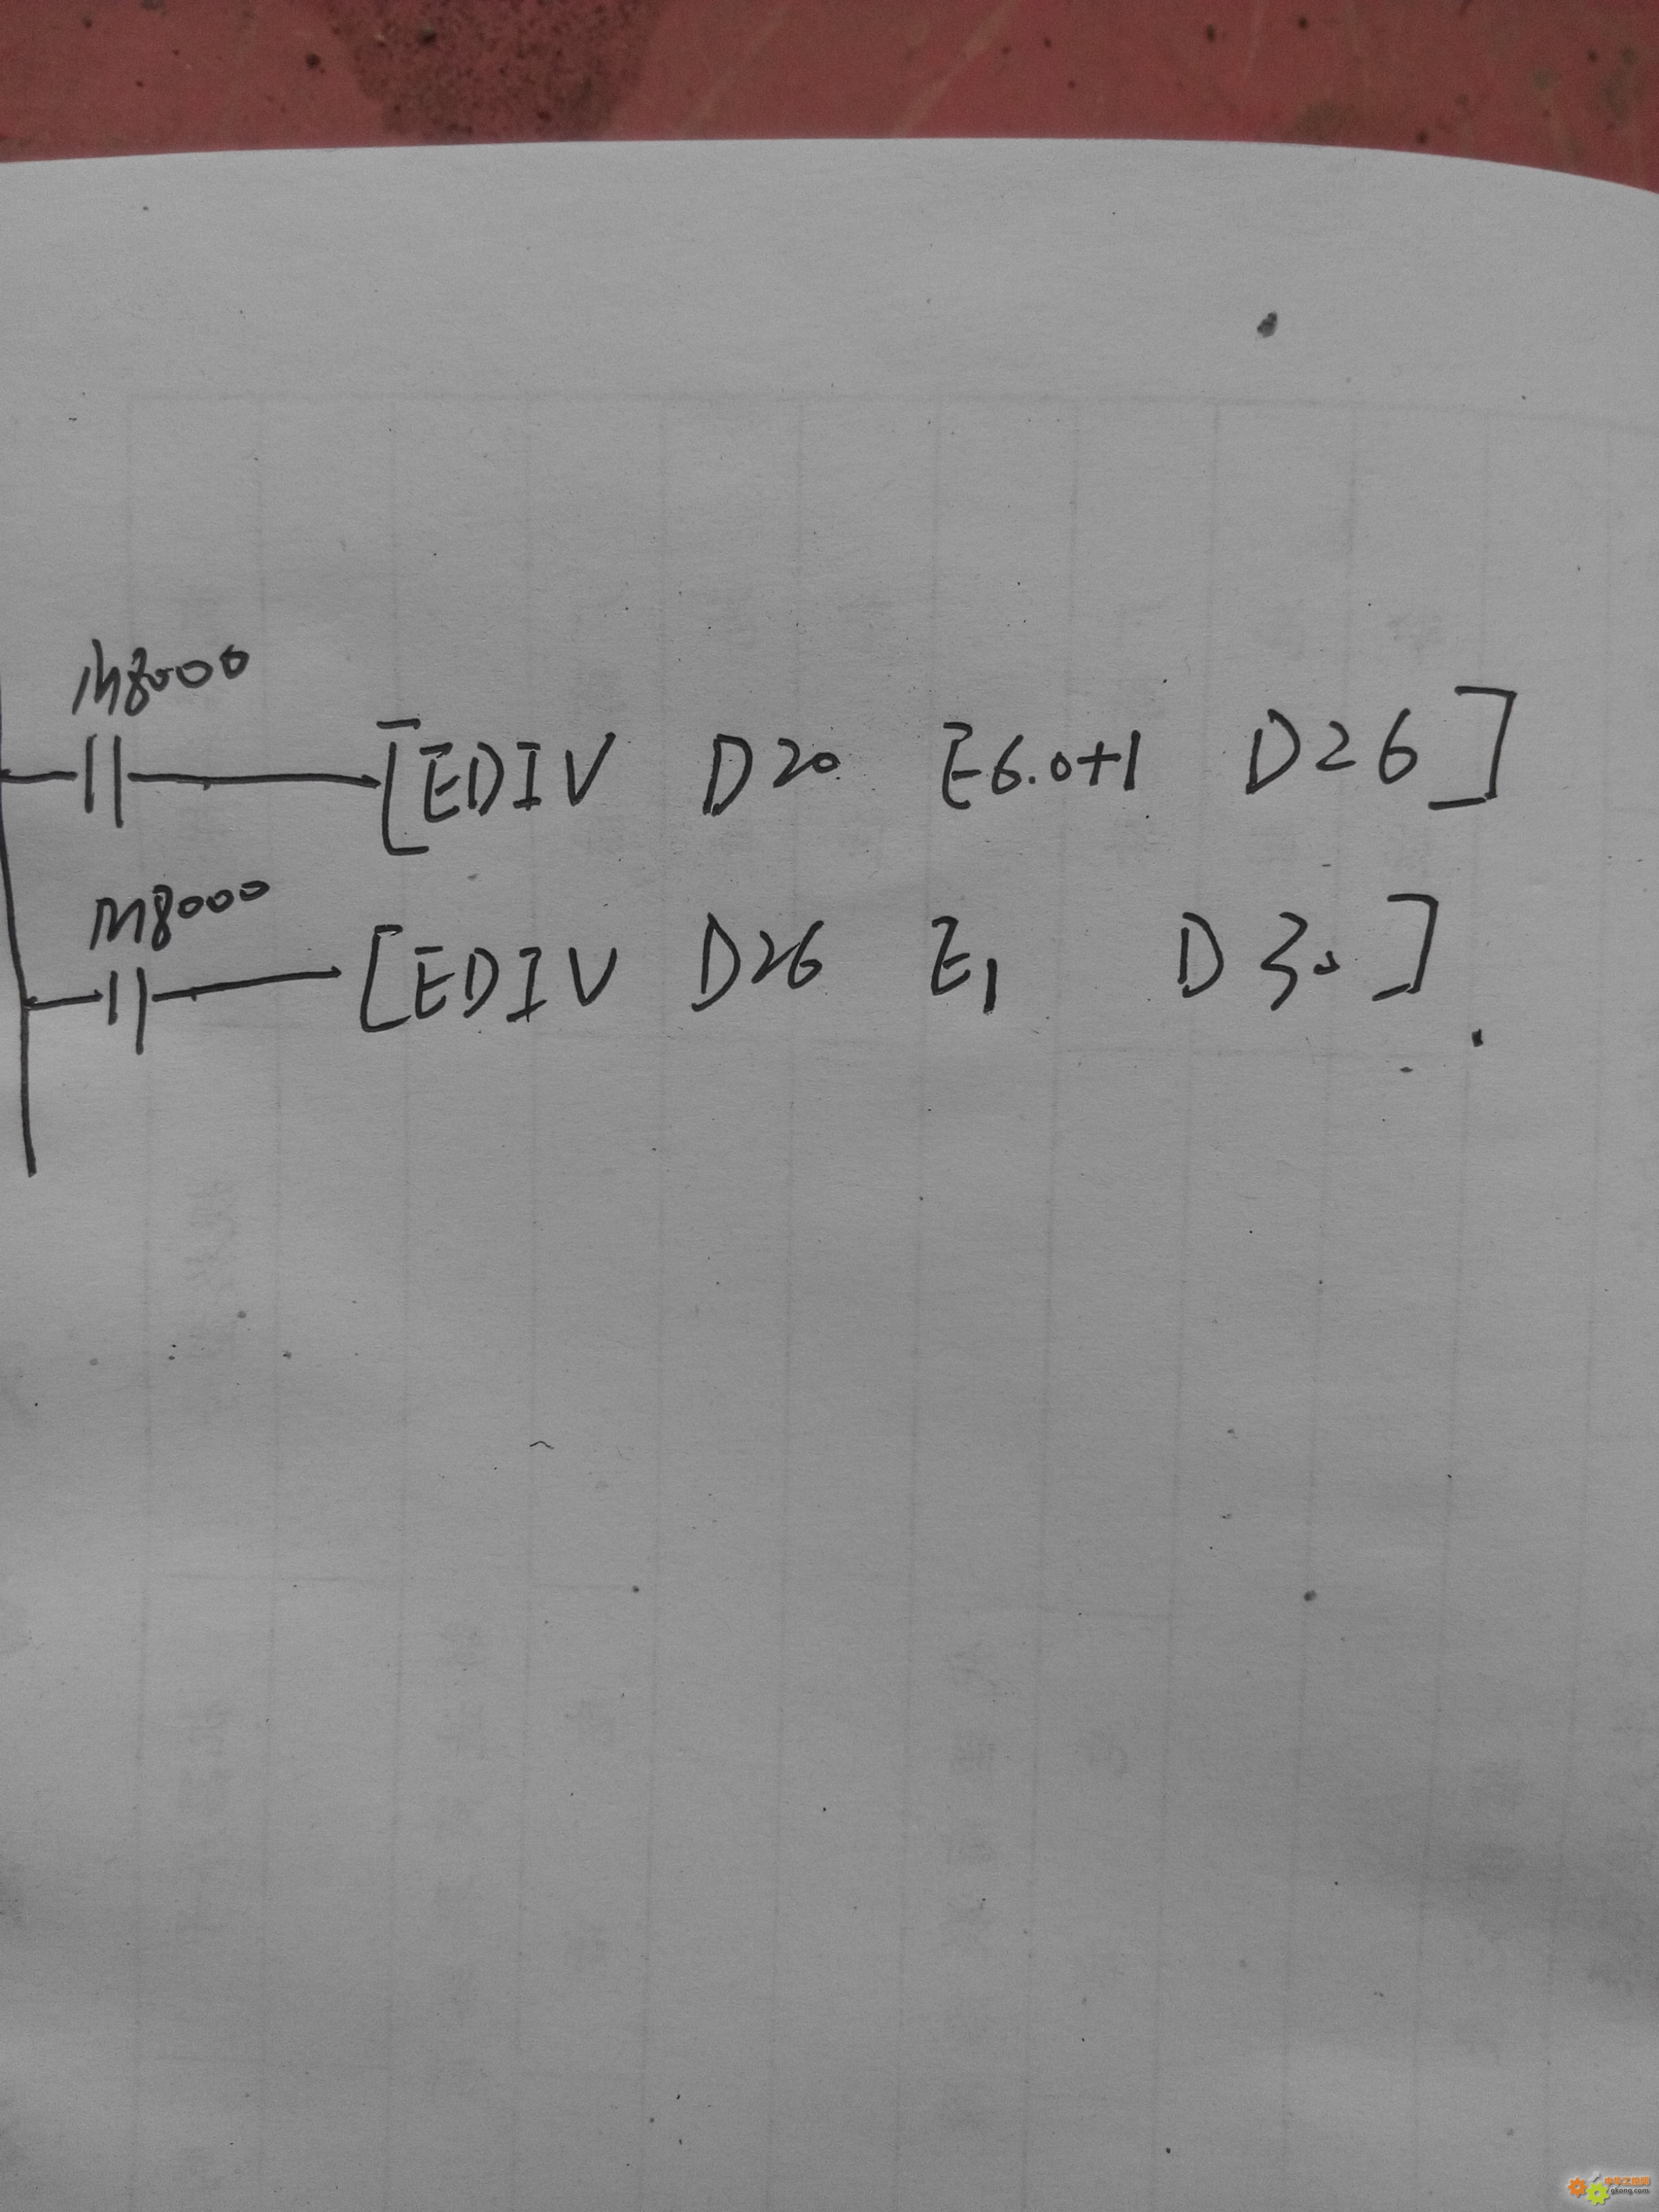 M8000
[EDIV D20 E6.0+1 D26]
M8000
[EDIV D26 E1 D30]
gkong.com